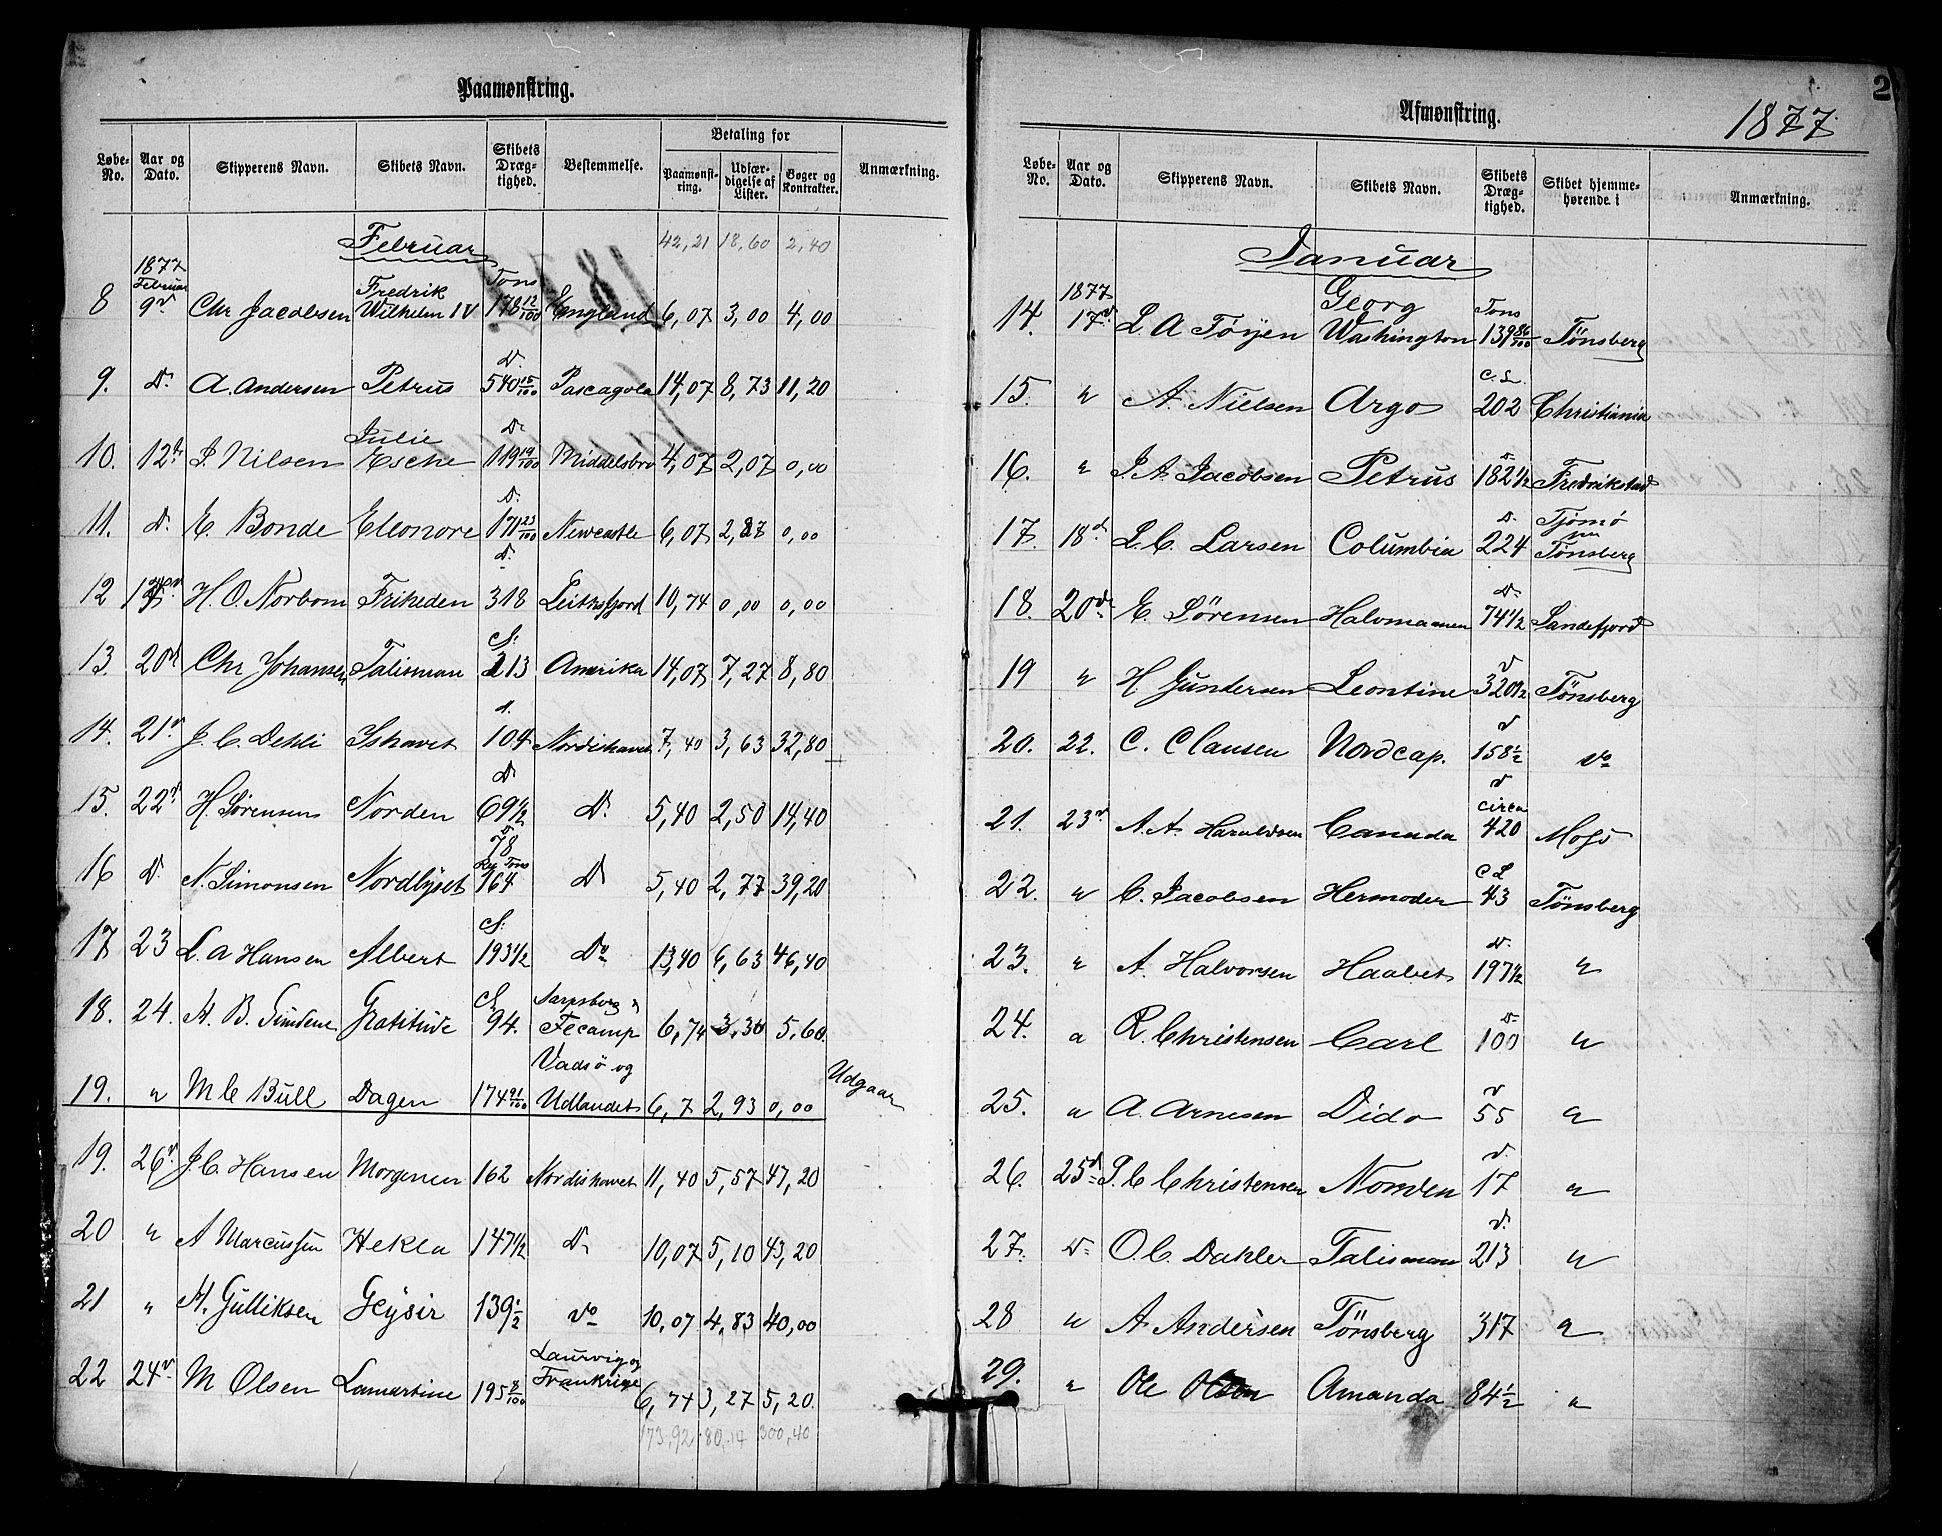 Paamønstring.
Løbe-No. | Aar og Dato. | Skipperens Navn. | Skibets Navn. | Skibets Dræg-tighed. | Bestemmelse. | Betaling for | Paamønst-ring. | Udfær-digelse af Lister. | Bøger og Kontrakter. | Anmærkning.
Februar 42,21 18,60 2,40
8 1877 Februar 9d Chr Jacobsen Fredrik Wilhelm IV Tons 178 12/100 England 6,07 3,00 4,00
9. Do A. Andersen Petrus Do 540 15/100 Pascagola 14,07 8,73 11,20
10. 12te J. Nilsen Julie Esche Do 119 19/100 Middelsbro 4,07 2,07 0,00
11. Do E. Bonde Eleonore Do 171 23/100 Newcastle 6,07 2,87 0,00
12 H. O. Norbom Friheden Do 318 10,74 0,00 0,00
13. 20d Chr Johansen Talisman Cl: 213 Amerika 14,07 7,27 8,80
14. 21d J. C. Dehli Ishavet d. 104 Nordishavet 7,40 3,63 32,80
15. 22d H. Sørensen Norden Do 69 1/2 Do 5,40 2,50 14,40
16 Do N. Simonsen Nordlyset Do 78 Reg Tons 164 Do 5,40 2,77 39,20
17 23 L. A Hansen Albert Cl: 193 1/2 Do 13,40 6,63 46,40
18. 24. A. B. Gratitude Cl 94. Sarpsborg & Fecamp 6,74 3,30 5,60
19. " M C Bull Dagen 174 91/100 Vadsö og Udlandet 6,7 2,93 0,00 Udgaar
19. 26d J. C. Hansen Morgenen 162 Nordishavet 11,40 5,57 47,20
20 " A Marcussen Hekla 147 1/2 Do 10,07 5,10 43,20
21 " A. Gulliksen Geysir 139 1/2 do 10,07 4,83 40,00
22 24d M Olsen Lamartine 195 8/100 Laurvig og Frankrige 6,74 3,27 5,20
173,92 80,17 300,40
2
Afmønstring.
1877
Løbe-No. | Aar og Dato. | Skipperens Navn. | Skibets Navn. | Skibets Dræg-tighed. | Skibet hjemme-hørende i | Anmærkning.
Januar
14. 1877 17d L. A Føyen Georg Washington Tons 139 86/100 Tønsberg
15. " A. Nielsen Argo C. L. 202 Christiania
16. " J. A. Jacobsen Petrus d 182 1/2 Fredrikstad
17. 18d L. C. Larsen Columbia Do 224 Tjømø pr Tønsberg
18. 20d E. Sørensen Halvmaanen Do 74 1/2 Sandefjord
19 " H Gundersen Leontine d 320 1/2 Tønsberg
20. 22. C. Clausen Nordcap. d 158 1/2 do
21. 23d A. A. Haraldsen Canada d circa 420 Moss
22. " C. Jacobsen Hermoder C L 43 Tønsberg
23. " A. Halvorsen Haabet Do 197 1/2 "
24. " R. Christensen Carl Do 100 "
25. " A. Arnesen Dido d 55 "
26. 25d P. C Christensen Norden d. 17 "
27. Do O. C. Dahler Talisman d. 213 "
28 " A. Andersen Tönsberg 317 "
29. " Ole Olsen Amanda 84 1/2 "